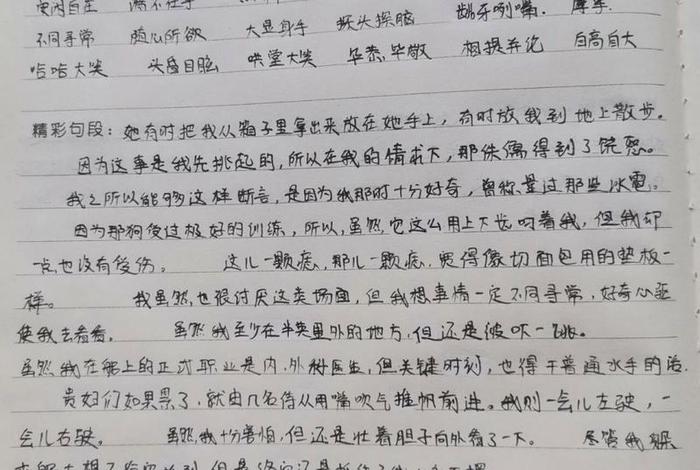 安闲自在 满不在乎
不同寻常 随心所欲 大显身手 探头探脑 龇牙咧嘴.
哈哈大笑 头昏目眩 哄堂大笑 毕恭毕敬 相提并论 自高自大
精彩句段：她有时把我从箱子里拿出来放在她手上，有时放我到地上散步。
因为这事是我先挑起的，所以在我的请求下，那侏儒得到了饶恕。
我之所以能够这样断言，是因为我那时十分好奇，曾称、量过那些冰雹。
因为那狗受过极好的训练，所以，虽然它这么用上下齿叼着我，但我却
一点也没有受伤。 这儿一颗痣，那儿一颗痣，宽得像切面包用的垫板一
样。 我虽然也很讨厌这类场面，但我想事情一定不同寻常，好奇心驱
使我去看看。 虽然我至少在半英里外的地方，但还是被吓一跳。
虽然我在船上的正式职业是内、外科医生，但关键时刻，也得干普通水手的活.
贵妇们如果累了，就由几名侍从用嘴吹气推帆前进。我则一会儿左驶，一
会儿右驶。 虽然我十分害怕，但还是壮着胆子向外看了一下。 尽管我